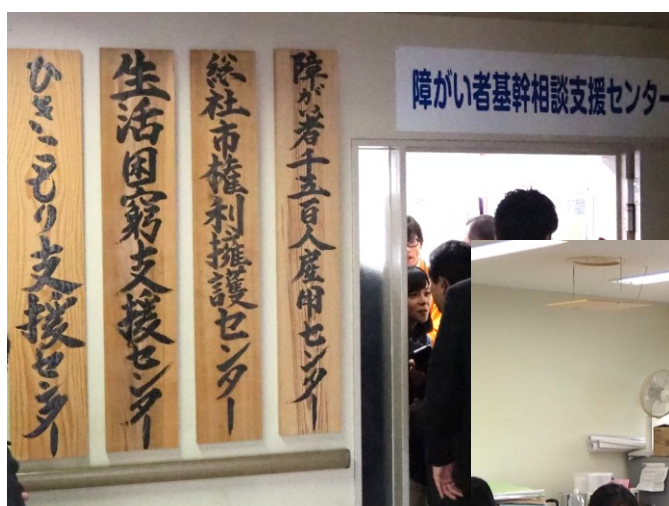 障がい者基幹相談支援センター
障がい者千五百人雇用センター
総社市権利擁護センター
生活困窮支援センター
ひきこもり支援センター